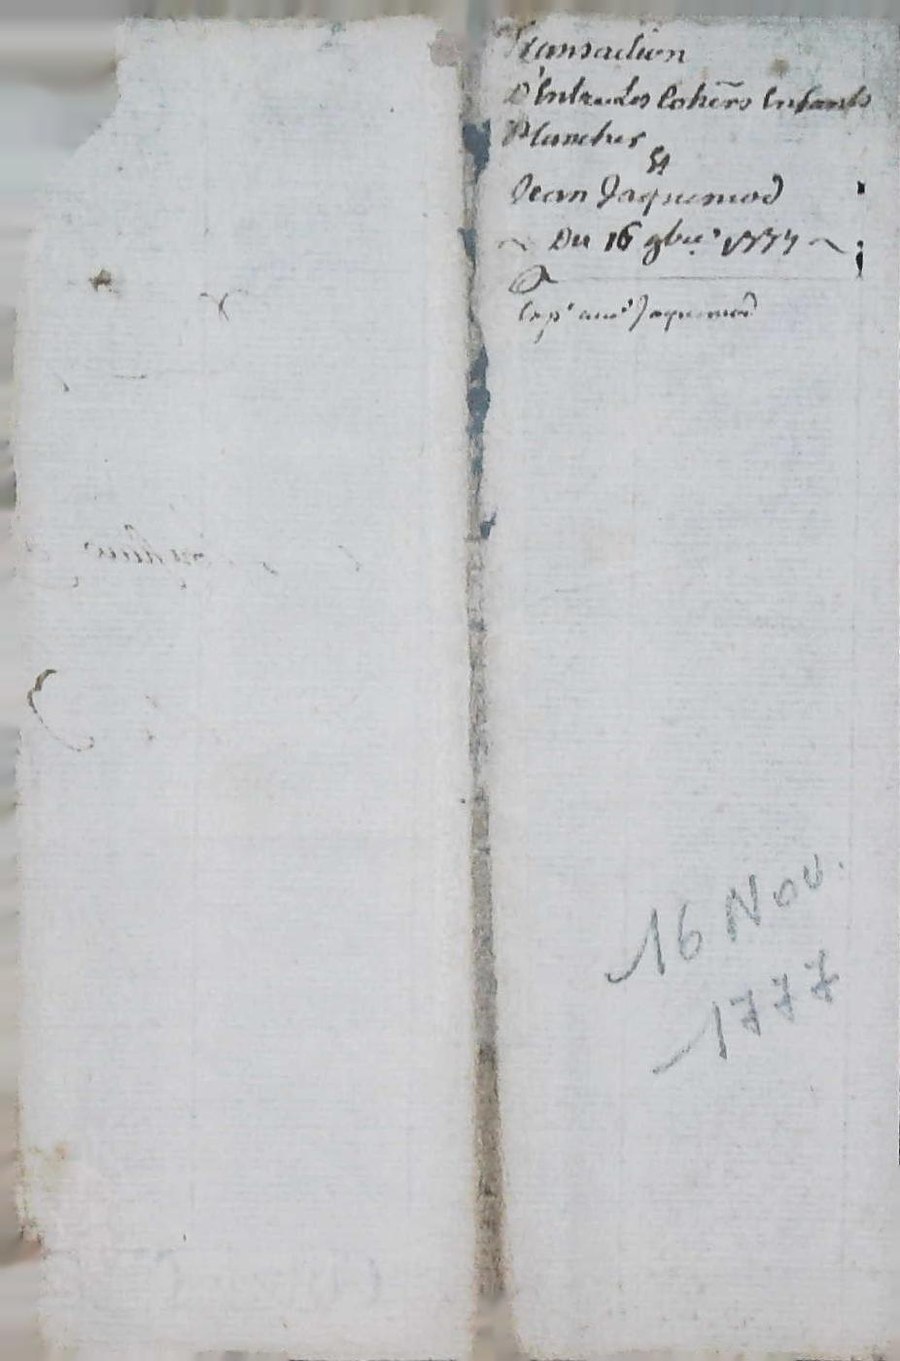 Transaction
D'Entre Les Cohers Enfants
Planches
Et
Jean Jaquemod
~ Du 16 9bre 1777 ~
Jaquemod
16 Nov.
1777